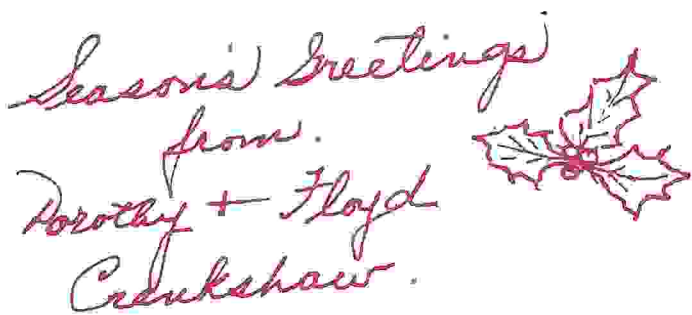 Season's Greetings
from.
Dorothy + Floyd
Crenkshaw.